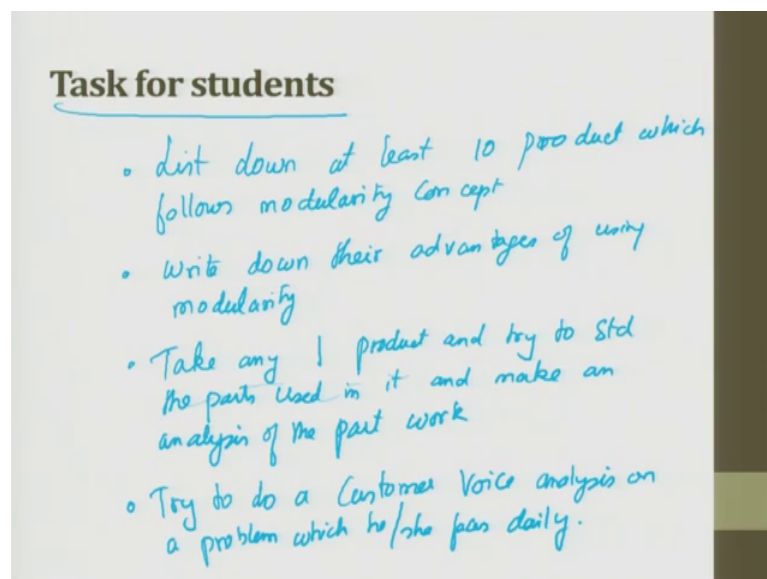 Task for students
• List down at least 10 product which
follows modularity concept
• Write down their advantages of using
modularity
• Take any 1 product and try to std
the parts used in it and make an
analysis of the part work
• Try to do a Customer Voice analysis on
a problem which he/she faces daily.